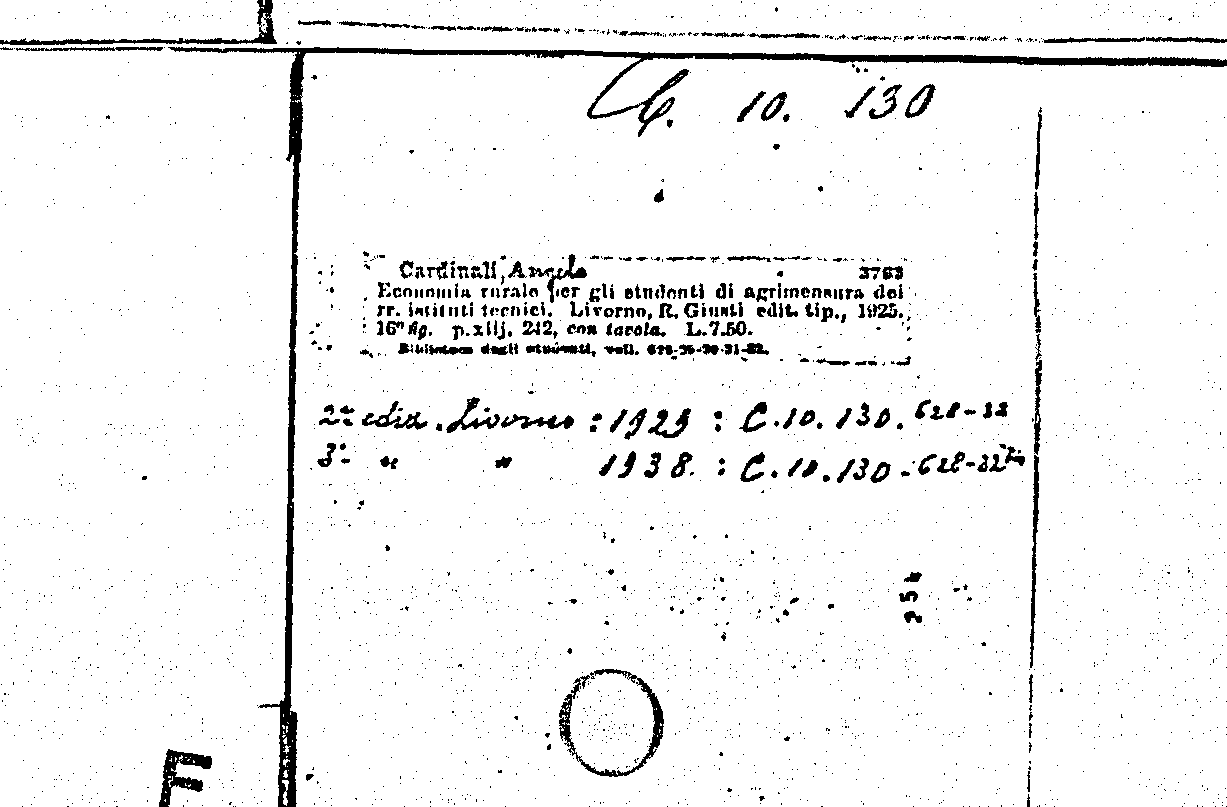 C. 10. 130
Cardinali, Angelo 3763
Economia rurale per gli studenti di agrimensura dei
rr. istituti tecnici. Livorno, R. Giusti edit. tip., 1925.
16° fig. p. xiij, 242, con tavola. L. 7.50.
Biblioteca degli studenti, voll. 628-29-30-31-32.
2ª ediz. Livorno : 1929 : C. 10. 130. 628-32
3ª " " 1938. : C. 10. 130 - 628-32
254
E